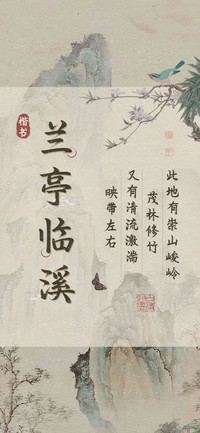 楷书
兰亭临溪
此地有崇山峻岭
茂林修竹
又有清流激湍
映带左右